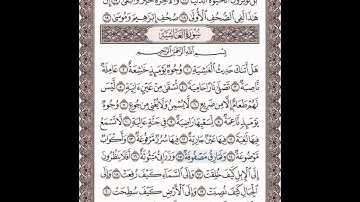 بَلْ تُؤْثِرُونَ ٱلْحَيَوٰةَ ٱلدُّنْيَا ١٦ وَٱلْءَاخِرَةُ خَيْرٌ وَأَبْقَىٰٓ ١٧ إِنَّ
هَٰذَا لَفِى ٱلصُّحُفِ ٱلْأُولَىٰ ١٨ صُحُفِ إِبْرَٰهِيمَ وَمُوسَىٰ ١٩
سُورَةُ الغَاشِيَةِ
بِسْمِ ٱللَّهِ ٱلرَّحْمَٰنِ ٱلرَّحِيمِ
هَلْ أَتَىٰكَ حَدِيثُ ٱلْغَٰشِيَةِ ١ وُجُوهٌ يَوْمَئِذٍ خَٰشِعَةٌ ٢ عَامِلَةٌ
نَّاصِبَةٌ ٣ تَصْلَىٰ نَارًا حَامِيَةً ٤ تُسْقَىٰ مِنْ عَيْنٍ ءَانِيَةٍ ٥ لَّيْسَ
لَهُمْ طَعَامٌ إِلَّا مِن ضَرِيعٍ ٦ لَّا يُسْمِنُ وَلَا يُغْنِى مِن جُوعٍ ٧ وُجُوهٌ
يَوْمَئِذٍ نَّاعِمَةٌ ٨ لِّسَعْيِهَا رَاضِيَةٌ ٩ فِى جَنَّةٍ عَالِيَةٍ ١٠ لَّا تَسْمَعُ
فِيهَا لَٰغِيَةً ١١ فِيهَا عَيْنٌ جَارِيَةٌ ١٢ فِيهَا سُرُرٌ مَّرْفُوعَةٌ ١٣ وَأَكْوَابٌ
مَّوْضُوعَةٌ ١٤ وَنَمَارِقُ مَصْفُوفَةٌ ١٥ وَزَرَابِىُّ مَبْثُوثَةٌ ١٦ أَفَلَا يَنظُرُونَ
إِلَى ٱلْإِبِلِ كَيْفَ خُلِقَتْ ١٧ وَإِلَى ٱلسَّمَآءِ كَيْفَ رُفِعَتْ ١٨ وَإِلَى
ٱلْجِبَالِ كَيْفَ نُصِبَتْ ١٩ وَإِلَى ٱلْأَرْضِ كَيْفَ سُطِحَتْ ٢٠